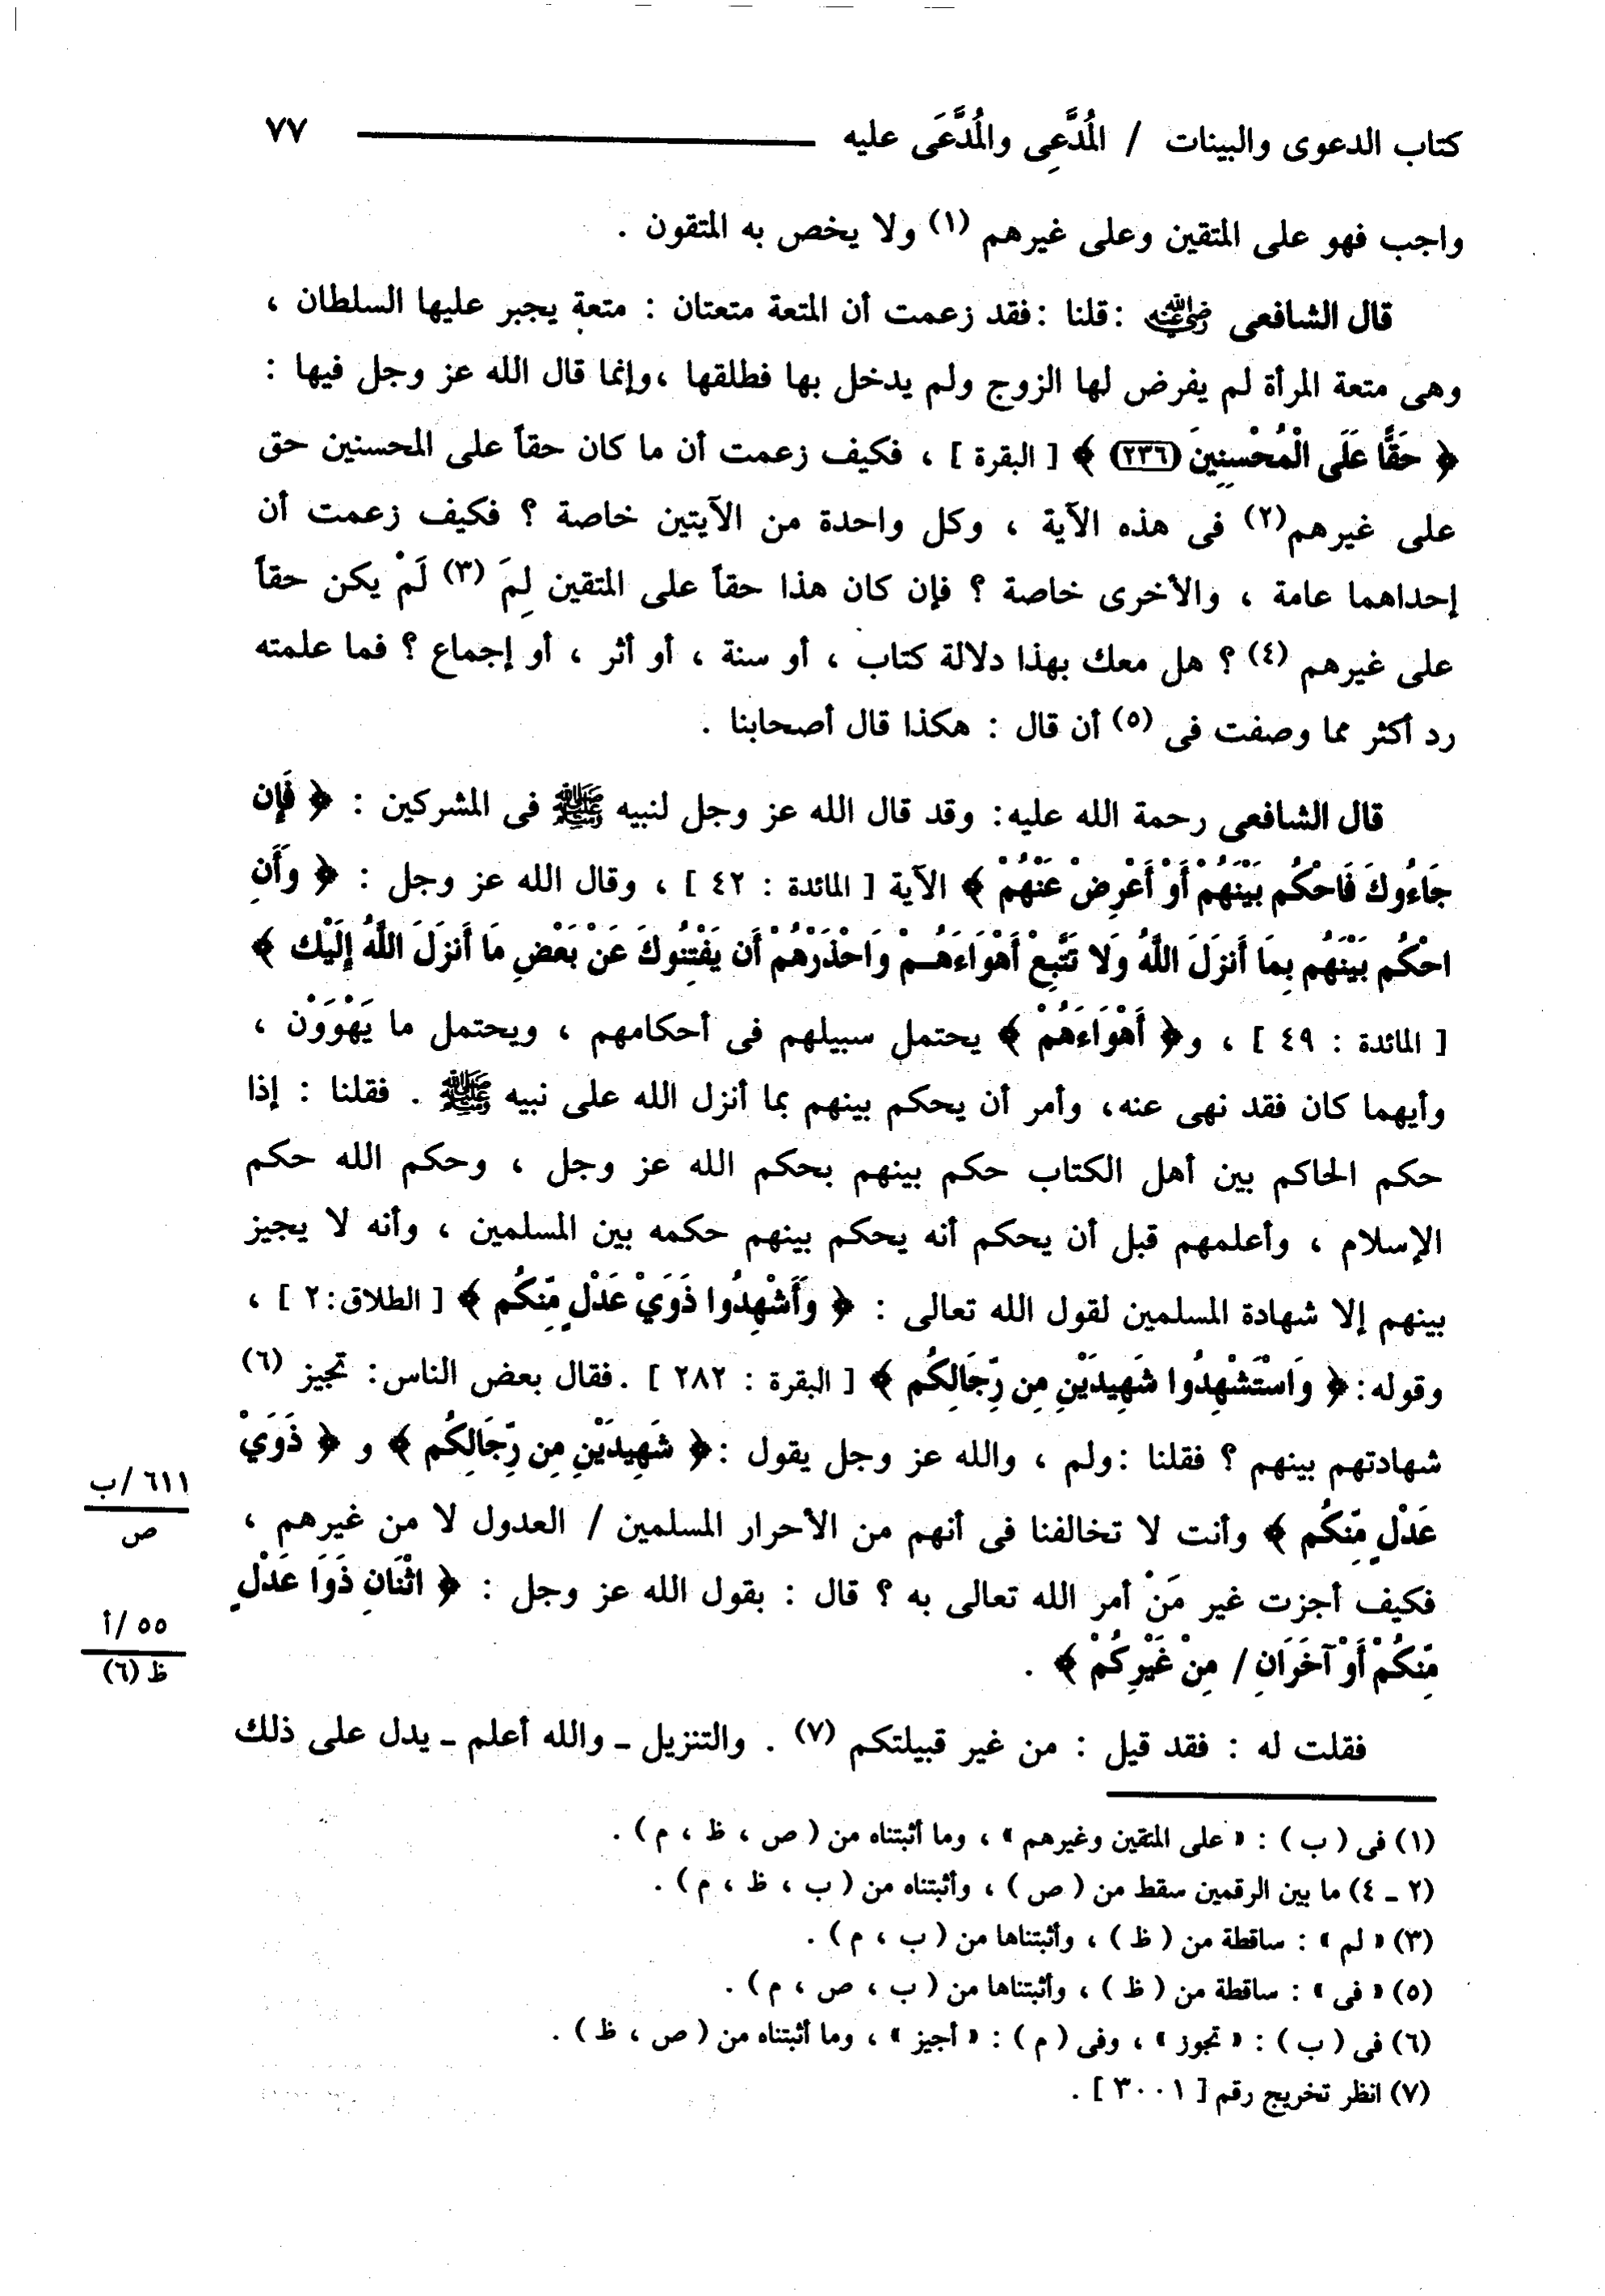 كتاب الدعوى والبينات / المُدَّعِى والمُدَّعَى عليه ٧٧
واجب فهو على المتقين وعلى غيرهم (١) ولا يخص به المتقون .
قال الشافعى رضي الله عنه : قلنا : فقد زعمت أن المتعة متعتان : متعة يجبر عليها السلطان ،
وهى متعة المرأة لم يفرض لها الزوج ولم يدخل بها فطلقها ، وإنما قال الله عز وجل فيها :
﴿ حَقًّا عَلَى الْمُحْسِنِينَ (٢٣٦) ﴾ [ البقرة ] ، فكيف زعمت أن ما كان حقاً على المحسنين حق
على غيرهم (٢) فى هذه الآية ، وكل واحدة من الآيتين خاصة ؟ فكيف زعمت أن
إحداهما عامة ، والأخرى خاصة ؟ فإن كان هذا حقاً على المتقين لِمَ (٣) لَمْ يكن حقاً
على غيرهم (٤) ؟ هل معك بهذا دلالة كتاب ، أو سنة ، أو أثر ، أو إجماع ؟ فما علمته
رد أكثر مما وصفت فى (٥) أن قال : هكذا قال أصحابنا .
قال الشافعى رحمة الله عليه : وقد قال الله عز وجل لنبيه ﷺ فى المشركين : ﴿ فَإِن
جَاءُوكَ فَاحْكُم بَيْنَهُمْ أَوْ أَعْرِضْ عَنْهُمْ ﴾ الآية [ المائدة : ٤٢ ] ، وقال الله عز وجل : ﴿ وَأَنِ
احْكُم بَيْنَهُم بِمَا أَنزَلَ اللَّهُ وَلا تَتَّبِعْ أَهْوَاءَهُمْ وَاحْذَرْهُمْ أَن يَفْتِنُوكَ عَنْ بَعْضِ مَا أَنزَلَ اللَّهُ إِلَيْكَ ﴾
[ المائدة : ٤٩ ] ، و﴿ أَهْوَاءَهُمْ ﴾ يحتمل سبيلهم فى أحكامهم ، ويحتمل ما يَهْوَوْن ،
وأيهما كان فقد نهى عنه ، وأمر أن يحكم بينهم بما أنزل الله على نبيه ﷺ . فقلنا : إذا
حكم الحاكم بين أهل الكتاب حكم بينهم بحكم الله عز وجل ، وحكم الله حكم
الإسلام ، وأعلمهم قبل أن يحكم أنه يحكم بينهم حكمه بين المسلمين ، وأنه لا يجيز
بينهم إلا شهادة المسلمين لقول الله تعالى : ﴿ وَأَشْهِدُوا ذَوَيْ عَدْلٍ مِّنكُم ﴾ [ الطلاق : ٢ ] ،
وقوله : ﴿ وَاسْتَشْهِدُوا شَهِيدَيْنِ مِن رِّجَالِكُم ﴾ [ البقرة : ٢٨٢ ] . فقال بعض الناس : تجيز (٦)
شهادتهم بينهم ؟ فقلنا : ولم ، والله عز وجل يقول : ﴿ شَهِيدَيْنِ مِن رِّجَالِكُم ﴾ و ﴿ ذَوَيْ
٦١١/ب
ص
عَدْلٍ مِّنكُم ﴾ وأنت لا تخالفنا فى أنهم من الأحرار المسلمين / العدول لا من غيرهم ،
فكيف أجزت غير مَنْ أمر الله تعالى به ؟ قال : بقول الله عز وجل : ﴿ اثْنَانِ ذَوَا عَدْلٍ
٥٥/أ
ظ (٦)
مِّنكُمْ أَوْ آخَرَانِ / مِنْ غَيْرِكُمْ ﴾ .
فقلت له : فقد قيل : من غير قبيلتكم (٧) . والتنزيل ـ والله أعلم ـ يدل على ذلك
(١) فى ( ب ) : « على المتقين وغيرهم » ، وما أثبتناه من ( ص ، ظ ، م ) .
(٢ ـ ٤) ما بين الرقمين سقط من ( ص ) ، وأثبتناه من ( ب ، ظ ، م ) .
(٣) « لم » : ساقطة من ( ظ ) ، وأثبتناها من ( ب ، م ) .
(٥) « فى » : ساقطة من ( ظ ) ، وأثبتناها من ( ب ، ص ، م ) .
(٦) فى ( ب ) : « تجوز » ، وفى ( م ) : « أجيز » ، وما أثبتناه من ( ص ، ظ ) .
(٧) انظر تخريج رقم [ ٣٠٠١ ] .